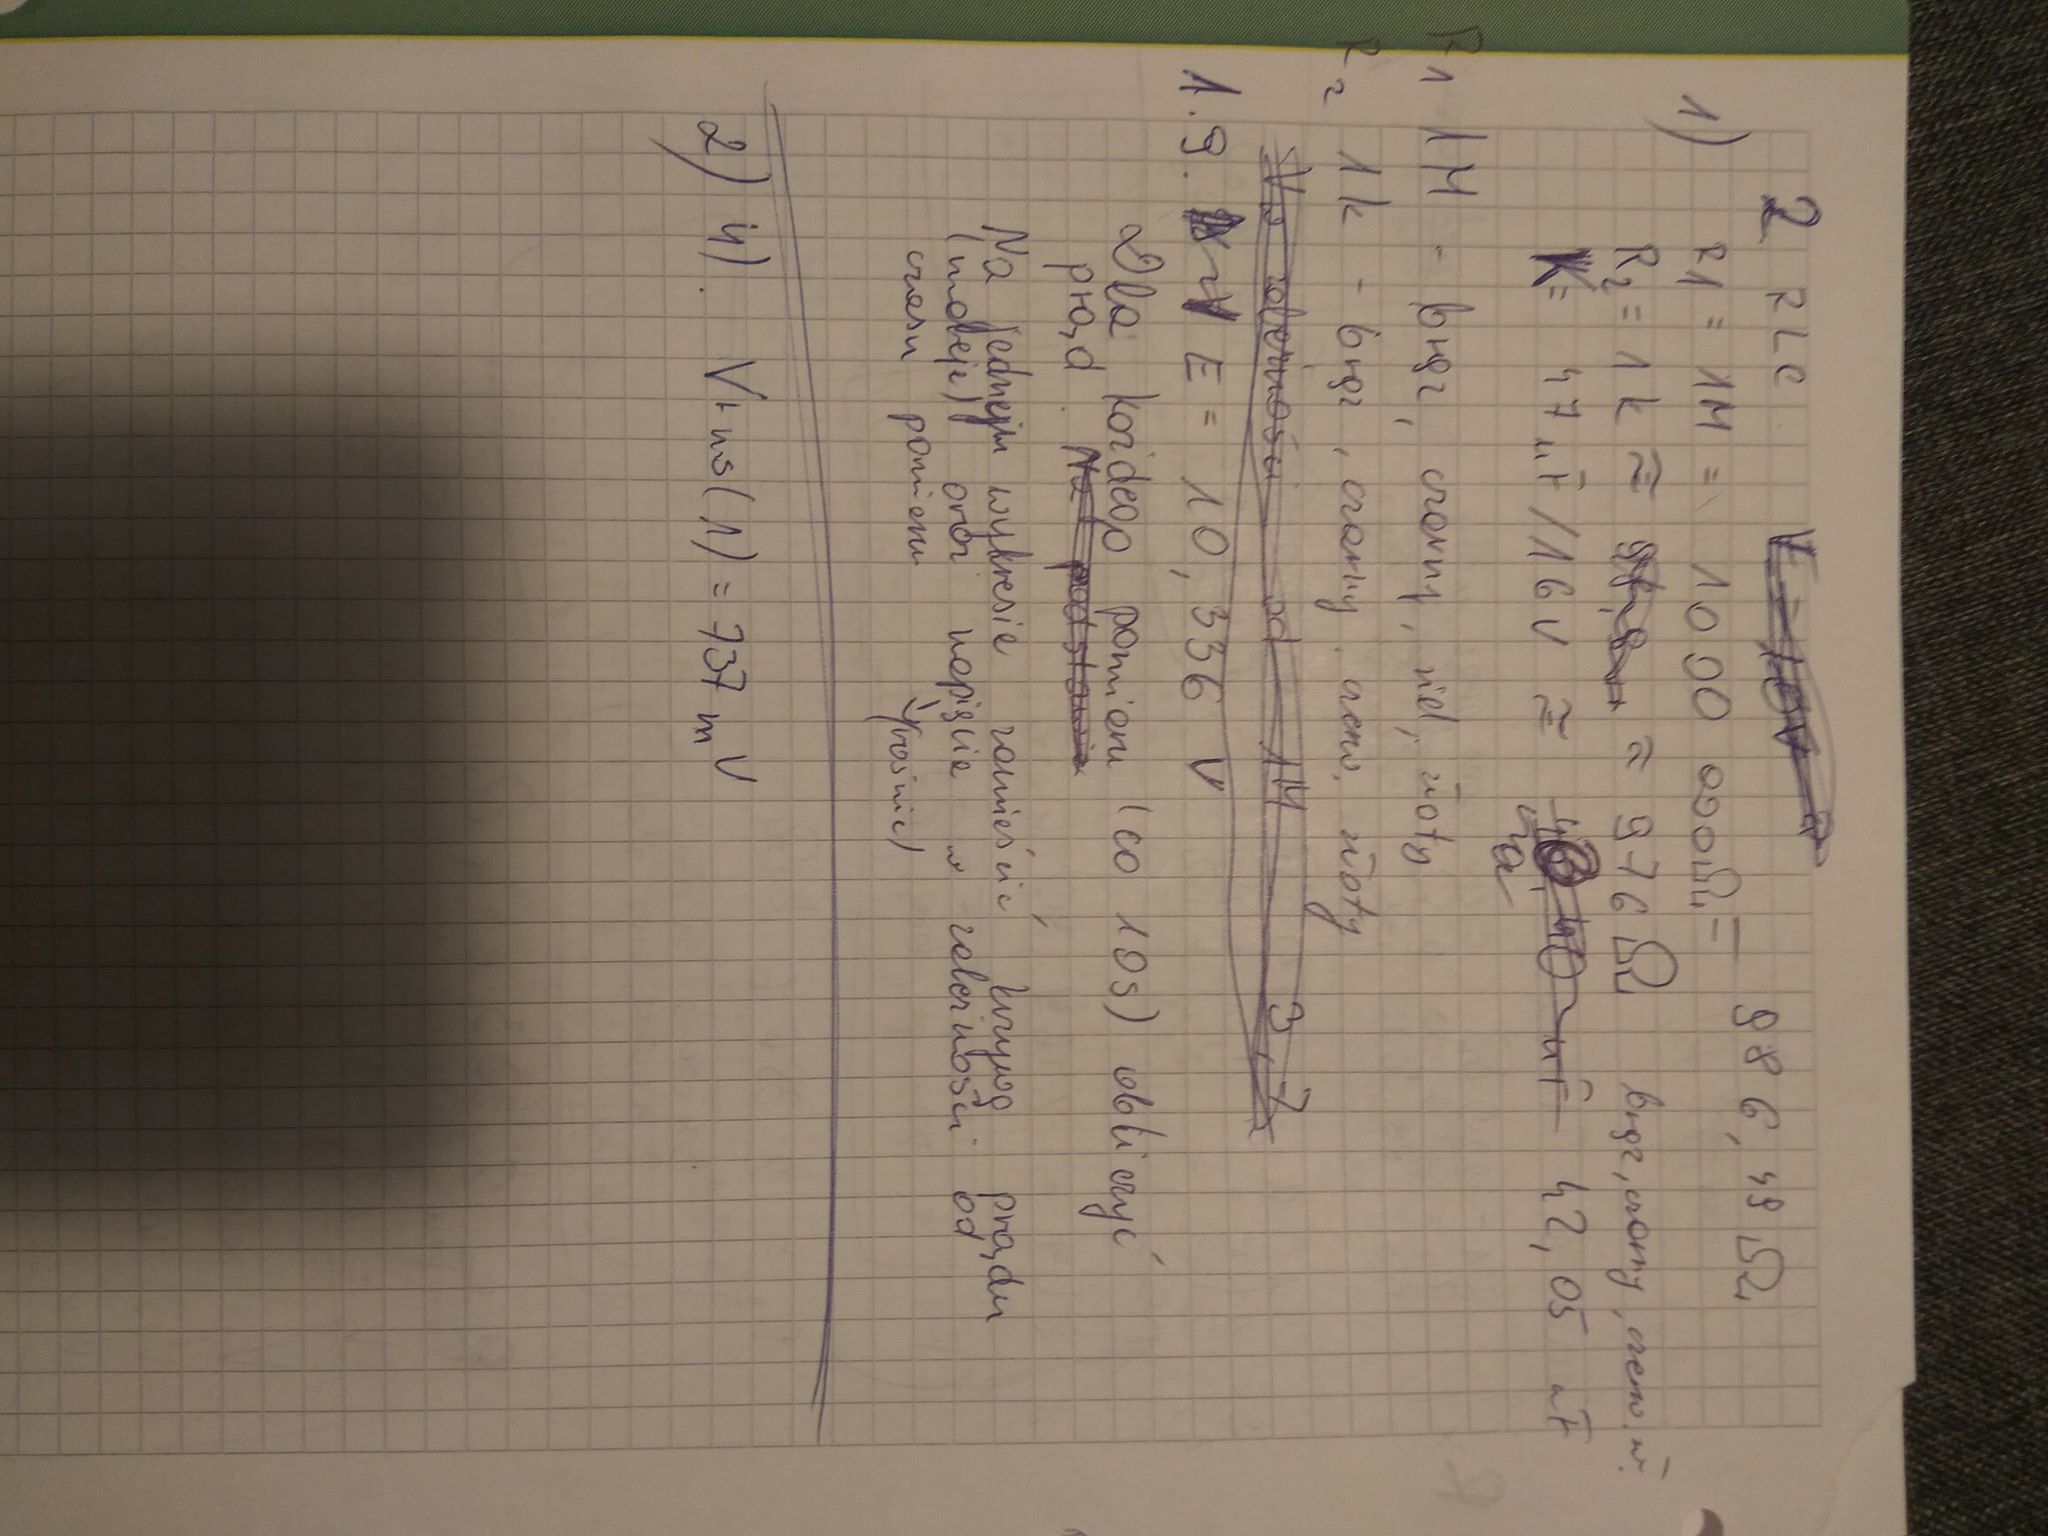 2 RLC V = 10V
986,49 Ω
1) R1 = 1M = 1000 000Ω =
R2 = 1k ≈ ≈ 976 Ω brąz, czarny, czerw. zł.
K = 47 uF/16V ≈ 42,05 uF
R1 1M - brąz, czarny, ziel, złoty
R2 1k - brąz, czarny, czerw. złoty
V w zależności od 1M 3,7
1.9. E = 10,336 V
Dla każdego pomiaru (co 10s) obliczyć
prąd. Na podstawie
Na jednym wykresie zamieścić krzywą prądu
(maleje) oraz napięcie w zależności od
czasu pomiaru (rośnie)
2) 4). Vrms(1) = 737 mV